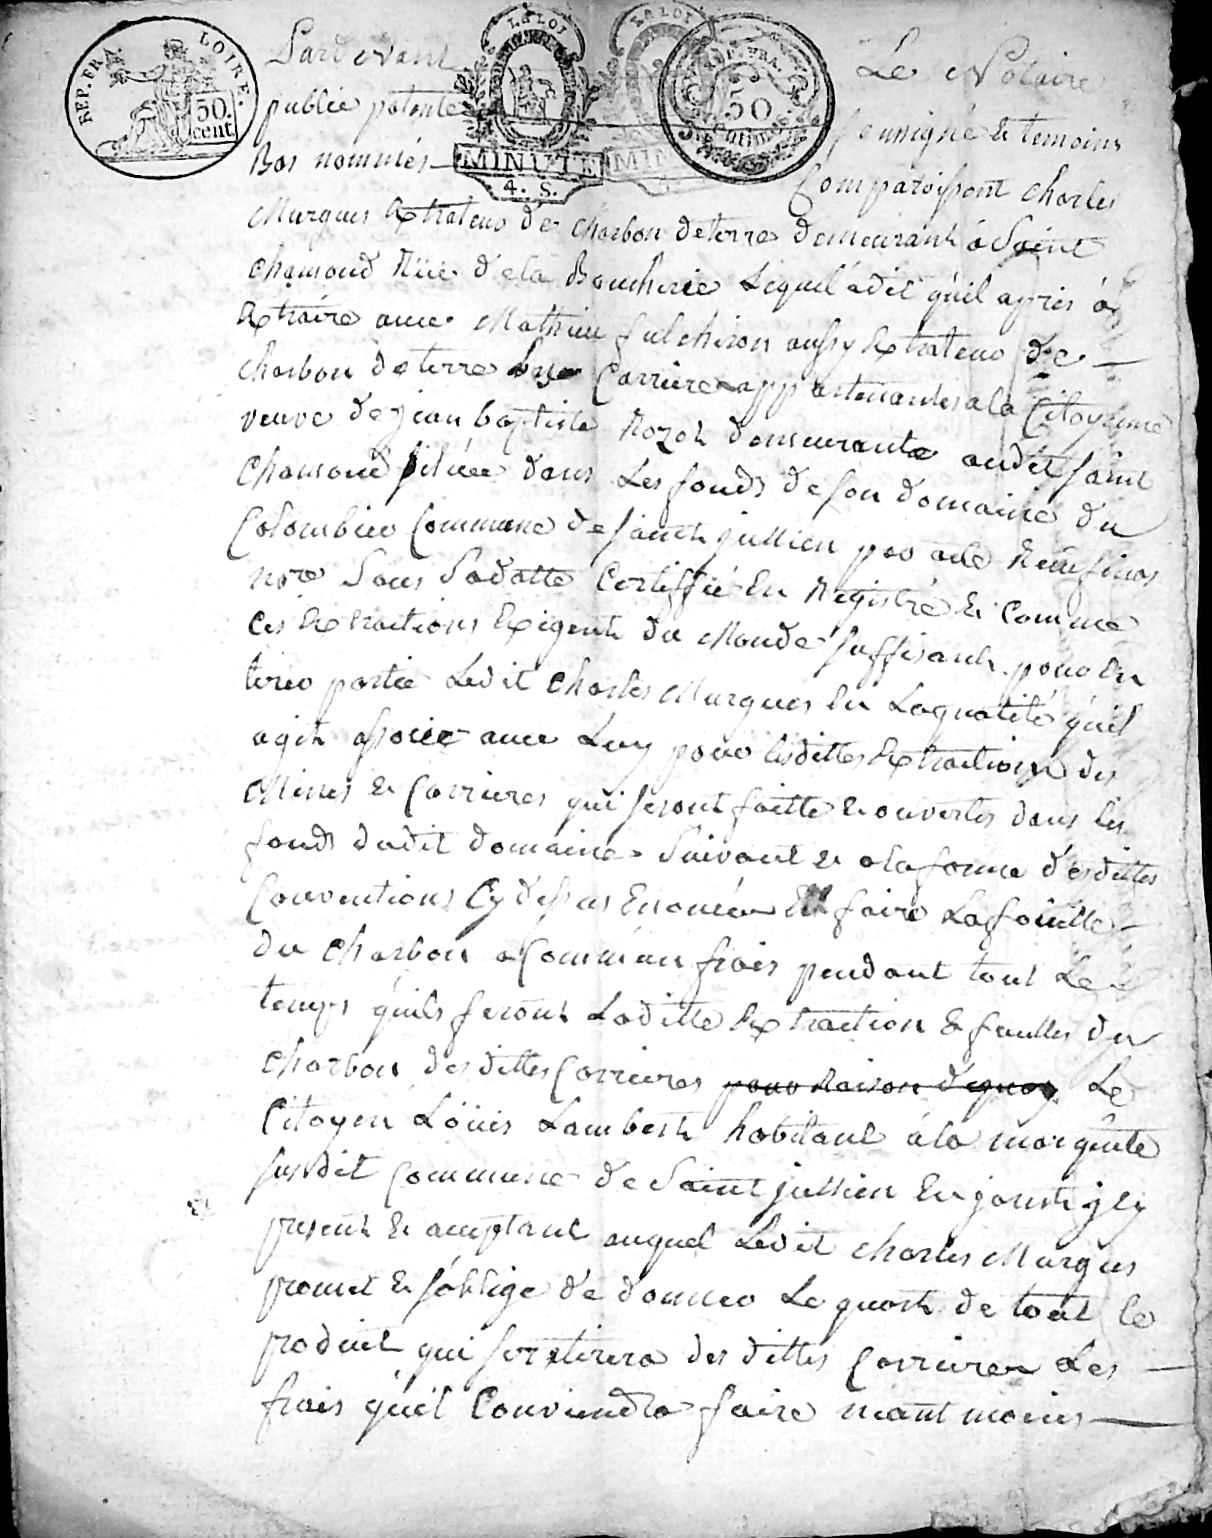 REP. FRA. LOIRE. 50. cent.
LA LOI MINUTE 4. S.
LA LOI MIN
REP. FRA. 50 Centimes
Pardevant Le Notaire
public patenté soussigné & temoins
Bas nommés Comparoissant Charles
Murgues Extrateur de Charbon de terre demeurant à Saint
Chamond Rüe de la Boucherie Lequel a dit qu'il apris à
Extraire avec Mathieu fulchiron aussy Extrateur de
Charbon de terre Carriere appartenantes a la Citoyenne
veuve de jean baptiste Rozet demeurante audit saint
Chamond situeé dans Les fonds de son domaine du
Colombier Commune de saint jullien par acte Reçu finas
nore Sous Sadatte Certiffié En Registré & Comme
Ces Extractions Exigent du Monde suffisant pour En
tirer partie Ledit Charles Murgues En Laqualité qu'il
agit associe avec Luy pour lesdittes Extractions des
Mines & Carrieres qui seront faitte & ouvertes dans les
fonds dudit domaine Suivant & ala forme desdittes
Conventions Cy dessus Enoncéer faire Lafouille
du Charbon a Commun frais pendant tout Le
temps qu'ils feront Laditte Extraction & fouilles du
Charbon desdittes Carrieres pour Raison dequoy Le
Citoyen Loüis Lambert habitant à la
susdit Commune de Saint jullien En joust jcy
present & acceptant auquel Ledit Charles Murgues
promet & s'oblige de donner Le quart de tout le
produit qui se retirera des dittes Carrieres Les
frais qu'il Conviendra faire néant moins